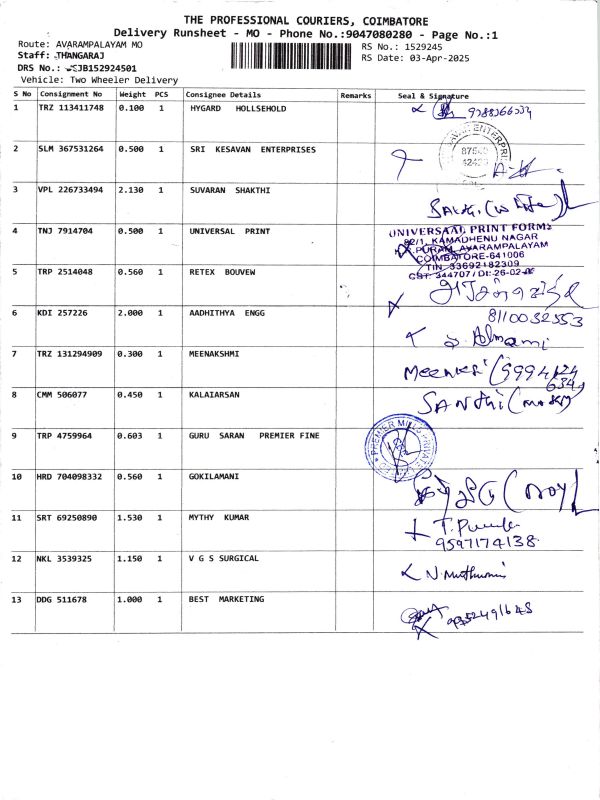 THE PROFESSIONAL COURIERS, COIMBATORE
Delivery Runsheet - MO - Phone No.:9047080280 - Page No.:1
Route: AVARAMPALAYAM MO RS No.: 1529245
Staff: THANGARAJ RS Date: 03-Apr-2025
DRS No.: JB152924501
Vehicle: Two Wheeler Delivery
S No Consignment No Weight PCS Consignee Details Remarks Seal & Signature
1 TRZ 113411748 0.100 1 HYGARD HOLLSEHOLD
2 SLM 367531264 0.500 1 SRI KESAVAN ENTERPRISES
3 VPL 226733494 2.130 1 SUVARAN SHAKTHI
4 TNJ 7914704 0.500 1 UNIVERSAL PRINT UNIVERSAAL PRINT FORMS
82/1, KAMADHENU NAGAR
PURAM, AVARAMPALAYAM
COIMBATORE-641006
TIN 33692182309
CST: 344707 / Dt:26-02-
5 TRP 2514048 0.560 1 RETEX BOUVEW
6 KDI 257226 2.000 1 AADHITHYA ENGG 8110032553
7 TRZ 131294909 0.300 1 MEENAKSHMI
8 CMM 506077 0.450 1 KALAIARSAN SANTHI
9 TRP 4759964 0.603 1 GURU SARAN PREMIER FINE PREMIER MILLS PRIVATE
10 HRD 704098332 0.560 1 GOKILAMANI
11 SRT 69250890 1.530 1 MYTHY KUMAR
9597174138
12 NKL 3539325 1.150 1 V G S SURGICAL
13 DDG 511678 1.000 1 BEST MARKETING